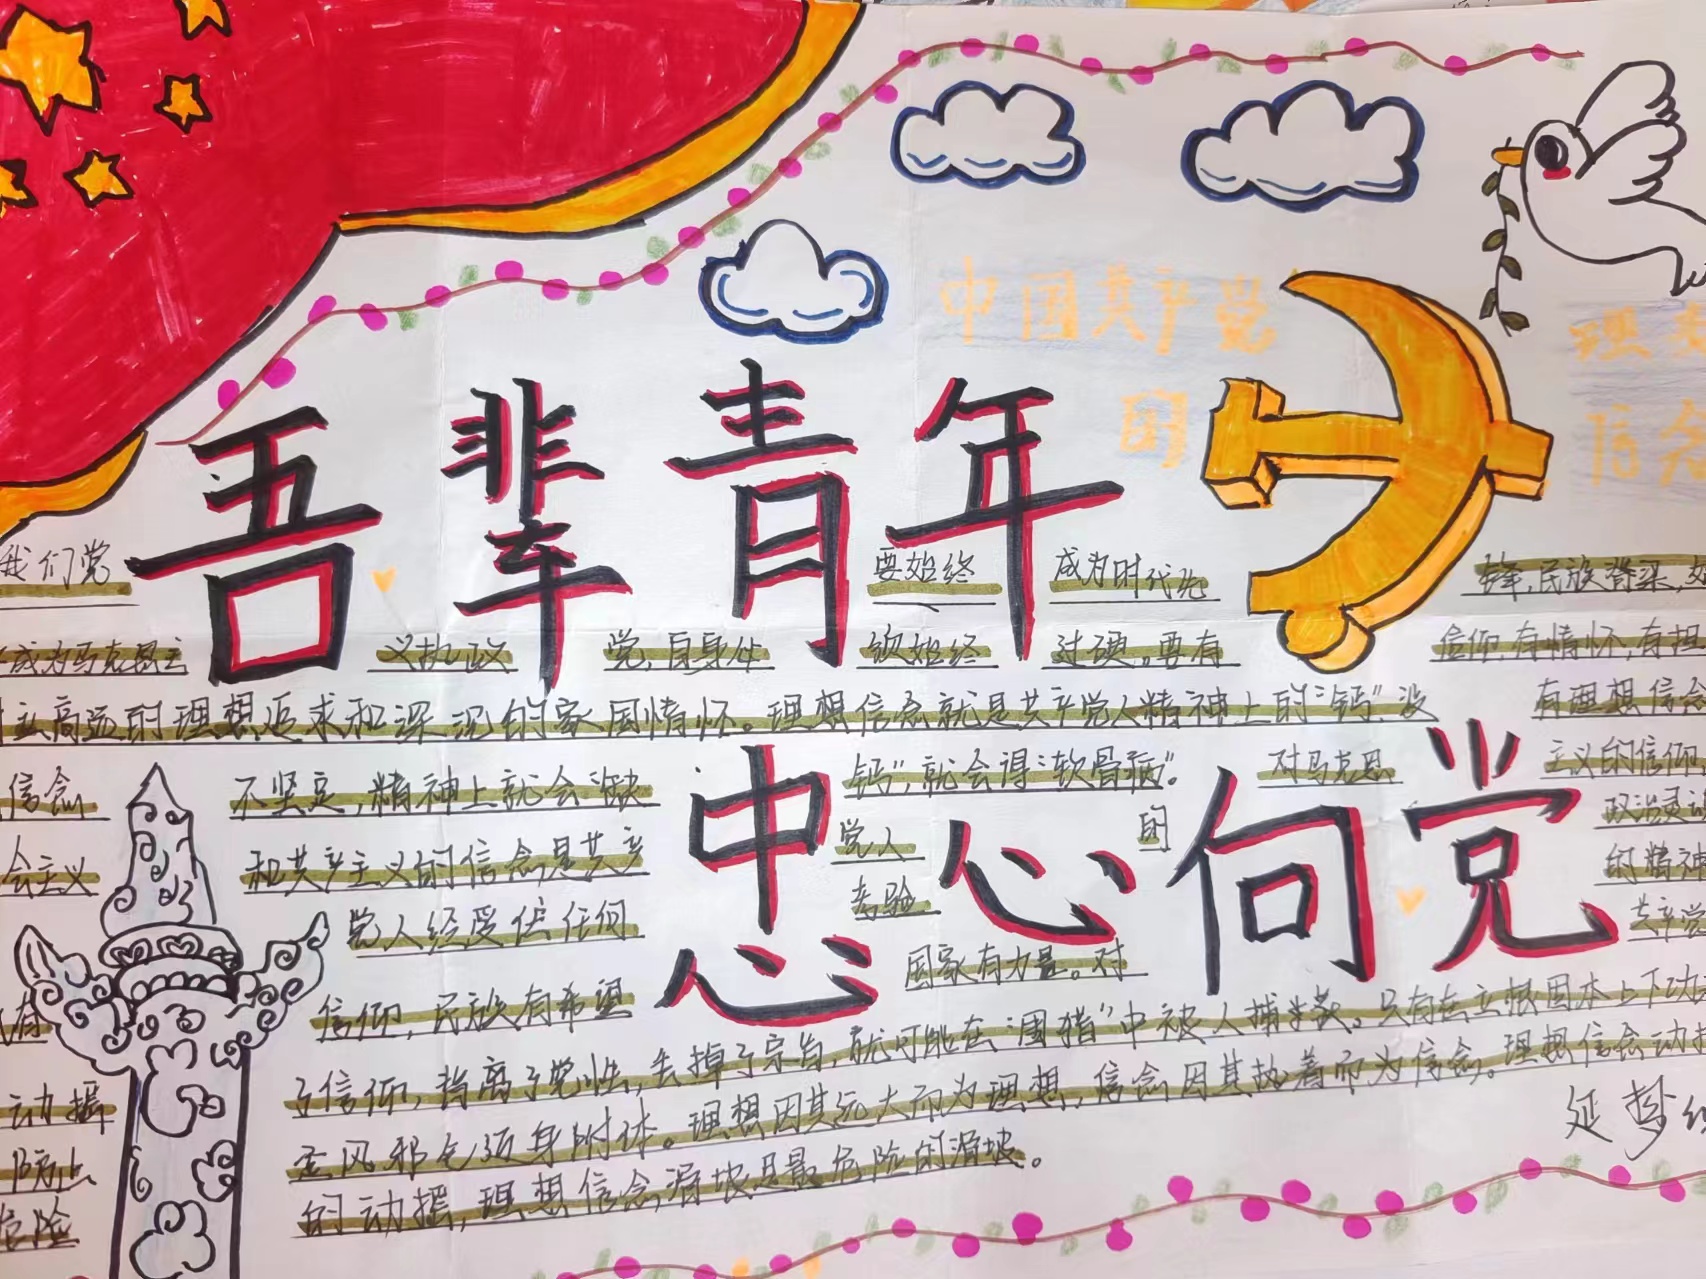 中国共产党
的
理
信念
吾辈青年
我们党 要始终 成为时代先 锋,民族脊梁,
成为马克思主 义执政 党,自身必 须始终 过硬。要有 信仰,有情怀,有担
立高远的理想追求和深沉的家国情怀。理想信念就是共产党人精神上的“钙”没 有理想信念
信念 不坚定,精神上就会“缺 钙”,就会得“软骨病”。 对马克思 主义的信仰,
会主义 和共产主义的信念是共产 党人 的 政治灵
党人经受住任何 考验 的精神
忠心向党
共产党
信仰,民族有希望 国家有力量。对
了信仰,背离了党性,丢掉了宗旨,就可能在“围猎”中被人捕获。只有在立根固本上下功
动摇 歪风邪气须身附体。理想因其远大而为理想,信念因其执着而为信念。理想信念动摇
防止 的动摇,理想信念滑坡是最危险的滑坡。
危险
延梦